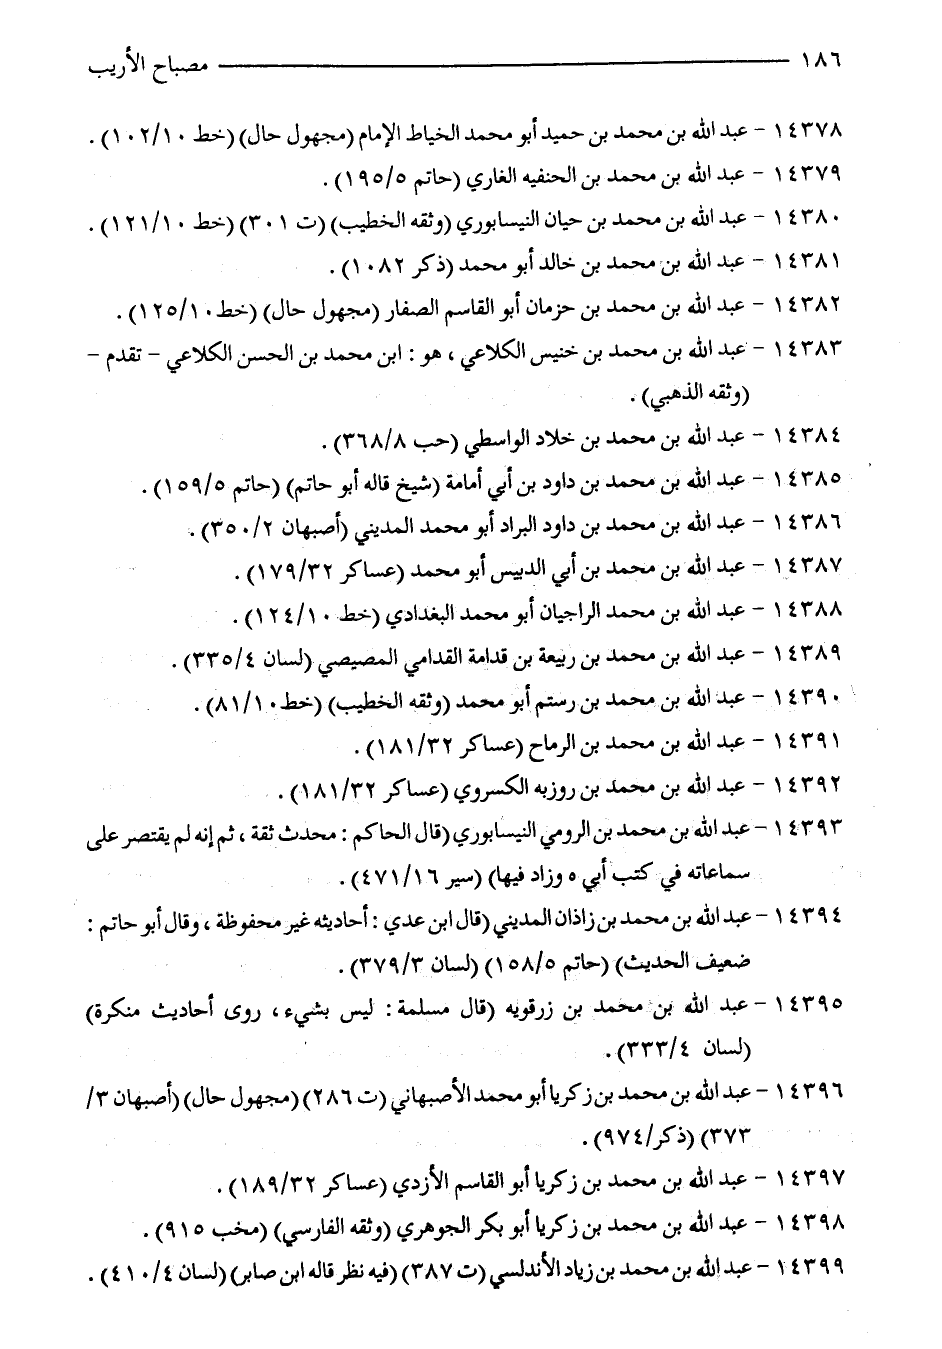 ١٨٦ مصباح الأريب
١٤٣٧٨ - عبد الله بن محمد بن حميد أبو محمد الخياط الإمام (مجهول حال) (خط ١٠٢/١٠) .
١٤٣٧٩ - عبد الله بن محمد بن الحنفيه الغاري (حاتم ١٩٥/٥) .
١٤٣٨٠ - عبد الله بن محمد بن حيان النيسابوري (وثقه الخطيب) (ت ٣٠١) (خط ١٢١/١٠) .
١٤٣٨١ - عبد الله بن محمد بن خالد أبو محمد (ذكر ١٠٨٢) .
١٤٣٨٢ - عبد الله بن محمد بن حزمان أبو القاسم الصفار (مجهول حال) (خط١٢٥/١٠) .
١٤٣٨٣ - عبد الله بن محمد بن خنيس الكلاعي ، هو : ابن محمد بن الحسن الكلاعي - تقدم -
(وثقه الذهبي) .
١٤٣٨٤ - عبد الله بن محمد بن خلاد الواسطي (حب ٣٦٨/٨) .
١٤٣٨٥ - عبد الله بن محمد بن داود بن أبي أمامة (شيخ قاله أبو حاتم) (حاتم ١٥٩/٥) .
١٤٣٨٦ - عبد الله بن محمد بن داود البراد أبو محمد المديني (أصبهان ٣٥٠/٢) .
١٤٣٨٧ - عبد الله بن محمد بن أبي الدبيس أبو محمد (عساكر ١٧٩/٣٢) .
١٤٣٨٨ - عبد الله بن محمد الراجيان أبو محمد البغدادي (خط ١٢٤/١٠) .
١٤٣٨٩ - عبد الله بن محمد بن ربيعة بن قدامة القدامي المصيصي (لسان ٣٣٥/٤) .
١٤٣٩٠ - عبد الله بن محمد بن رستم أبو محمد (وثقه الخطيب) (خط٨١/١٠) .
١٤٣٩١ - عبد الله بن محمد بن الرماح (عساكر ١٨١/٣٢) .
١٤٣٩٢ - عبد الله بن محمد بن روزبه الكسروي (عساكر ١٨١/٣٢) .
١٤٣٩٣ - عبد الله بن محمد بن الرومي النيسابوري (قال الحاكم : محدث ثقة ، ثم إنه لم يقتصر على
سماعاته في كتب أبي ٥ وزاد فيها) (سير ٤٧١/١٦) .
١٤٣٩٤ - عبد الله بن محمد بن زاذان المديني (قال ابن عدي : أحاديثه غير محفوظة ، وقال أبو حاتم :
ضعيف الحديث) (حاتم ١٥٨/٥) (لسان ٣٧٩/٣) .
١٤٣٩٥ - عبد الله بن محمد بن زرقويه (قال مسلمة : ليس بشيء ، روى أحاديث منكرة)
(لسان ٣٣٣/٤) .
١٤٣٩٦ - عبد الله بن محمد بن زكريا أبو محمد الأصبهاني (ت ٢٨٦) (مجهول حال) (أصبهان ٣/
٣٧٣) (ذكر/٩٧٤) .
١٤٣٩٧ - عبد الله بن محمد بن زكريا أبو القاسم الأزدي (عساكر ١٨٩/٣٢) .
١٤٣٩٨ - عبد الله بن محمد بن زكريا أبو بكر الجوهري (وثقه الفارسي) (مخب ٩١٥) .
١٤٣٩٩ - عبد الله بن محمد بن زياد الأندلسي (ت ٣٨٧) (فيه نظر قاله ابن صابر) (لسان ٤١٠/٤) .